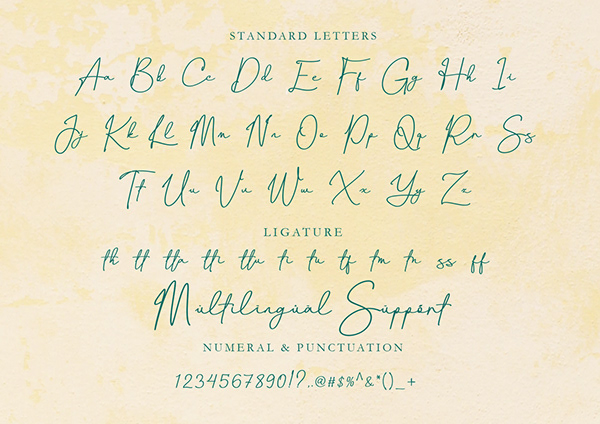 STANDARD LETTERS
Aa Bb Cc Dd Ee Ff Gg Hh Ii
Jj Kk Ll Mm Nn Oo Pp Qq Rr Ss
Tt Uu Vv Ww Xx Yy Zz
LIGATURE
th tt tta tti ttu ti tu tf tm tn ss ff
Múltílíngúál Súppórt
NUMERAL & PUNCTUATION
1234567890!?..@#$%^&*()_+